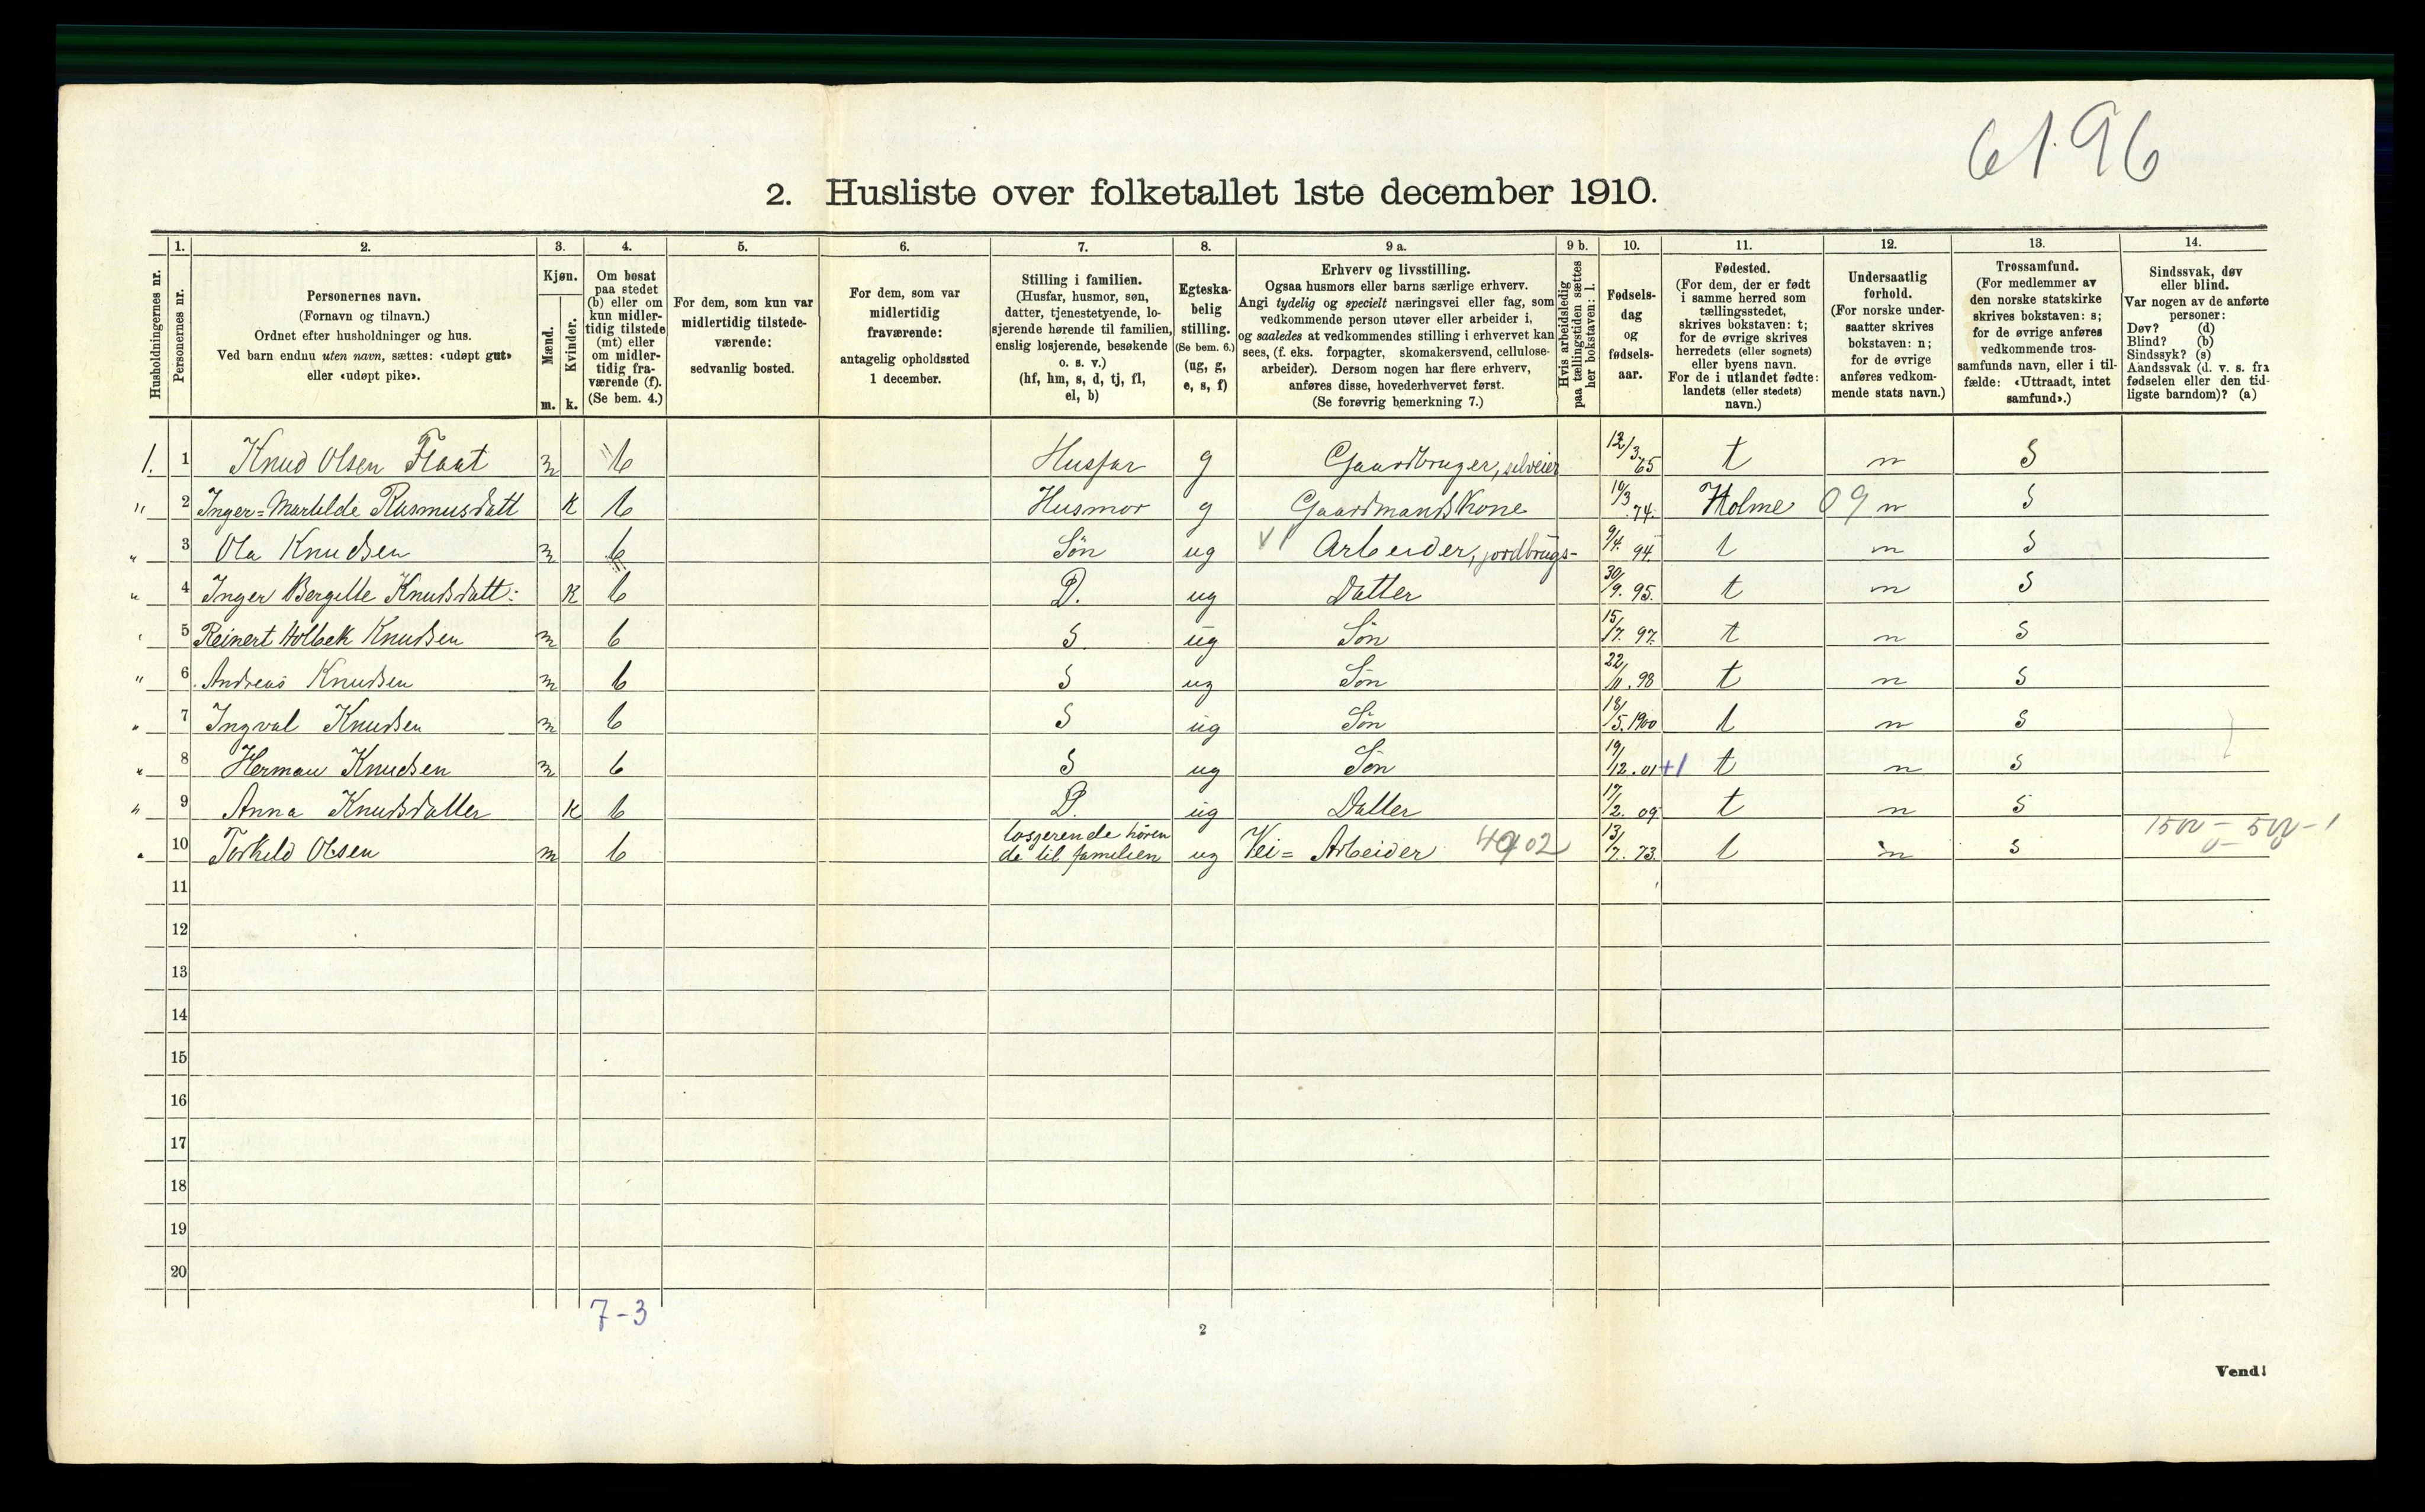 6196
2. Husliste over folketallet 1ste december 1910.
Husholdningernes nr.
1.
Personernes nr.
2.
Personernes navn.
(Fornavn og tilnavn.)
Ordnet efter husholdninger og hus.
Ved barn endnu uten navn, sættes: «udøpt gut»
eller «udøpt pike».
3.
Kjøn.
Mænd.
Kvinder.
m. k.
4.
Om bosat
paa stedet
(b) eller om
kun midler-
tidig tilstede
(mt) eller
om midler-
tidig fra-
værende (f).
(Se bem. 4.)
5.
For dem, som kun var
midlertidig tilstede-
værende:
sedvanlig bosted.
6.
For dem, som var
midlertidig
fraværende:
antagelig opholdssted
1 december.
7.
Stilling i familien.
(Husfar, husmor, søn,
datter, tjenestetyende, lo-
sjerende hørende til familien,
enslig losjerende, besøkende
o. s. v.)
(hf, hm, s, d, tj, fl,
el, b)
8.
Egteska-
belig
stilling.
(Se bem. 6.)
(ug, g,
e, s, f)
9 a.
Erhverv og livsstilling.
Ogsaa husmors eller barns særlige erhverv.
Angi tydelig og specielt næringsvei eller fag, som
vedkommende person utøver eller arbeider i,
og saaledes at vedkommendes stilling i erhvervet kan
sees, (f. eks. forpagter, skomakersvend, cellulose-
arbeider). Dersom nogen har flere erhverv,
anføres disse, hovederhvervet først.
(Se forøvrig bemerkning 7.)
9 b.
Hvis arbeidsledig
paa tællingstiden sættes
her bokstaven: l.
10.
Fødsels-
dag
og
fødsels-
aar.
11.
Fødested.
(For dem, der er født
i samme herred som
tællingsstedet,
skrives bokstaven: t;
for de øvrige skrives
herredets (eller sognets)
eller byens navn.
For de i utlandet fødte:
landets (eller stedets)
navn.)
12.
Undersaatlig
forhold.
(For norske under-
saatter skrives
bokstaven: n;
for de øvrige
anføres vedkom-
mende stats navn.)
13.
Trossamfund.
(For medlemmer av
den norske statskirke
skrives bokstaven: s;
for de øvrige anføres
vedkommende tros-
samfunds navn, eller i til-
fælde: «Uttraadt, intet
samfund».)
14.
Sindssvak, døv
eller blind.
Var nogen av de anførte
personer:
Døv? (d)
Blind? (b)
Sindssyk? (s)
Aandssvak (d. v. s. fra
fødselen eller den tid-
ligste barndom)? (a)
1. 1 Knud Olsen Flaat m b Husfar g Gaardbruger, selveier 12/3 65 t n S
" 2 Inger=Marthilde Rasmusdatt k b Husmor g Gaardmandskone 10/3 .74. Holme 09 n S
" 3 Ola Knudsen m b Søn ug Arbeider, jordbrugs- 9/4. 94. t n S
" 4 Inger Bergitte Knudsdatt: K b D. ug Datter 30/9. 95. t n S
" 5 Reinert Holbek Knudsen m b S. ug Søn 15/7. 97. t n S
" 6 Andreas Knudsen m b S ug Søn 22/11. 98 t n S
" 7 Ingval Knudsen m b S ug Søn 18/5. 1900 t n S
" 8 Herman Knudsen m b S ug Søn 19/12. 01 +1 t n S
" 9 Anna Knudsdatter K b D. ug Datter 17/2. 09 t n S
" 10 Torkild Olsen m b losjerende høren
de til familien ug Vei= Arbeider 13/7. 73. t n S
11
12
13
14
15
16
17
18
19
20
7-3
2
Vend!